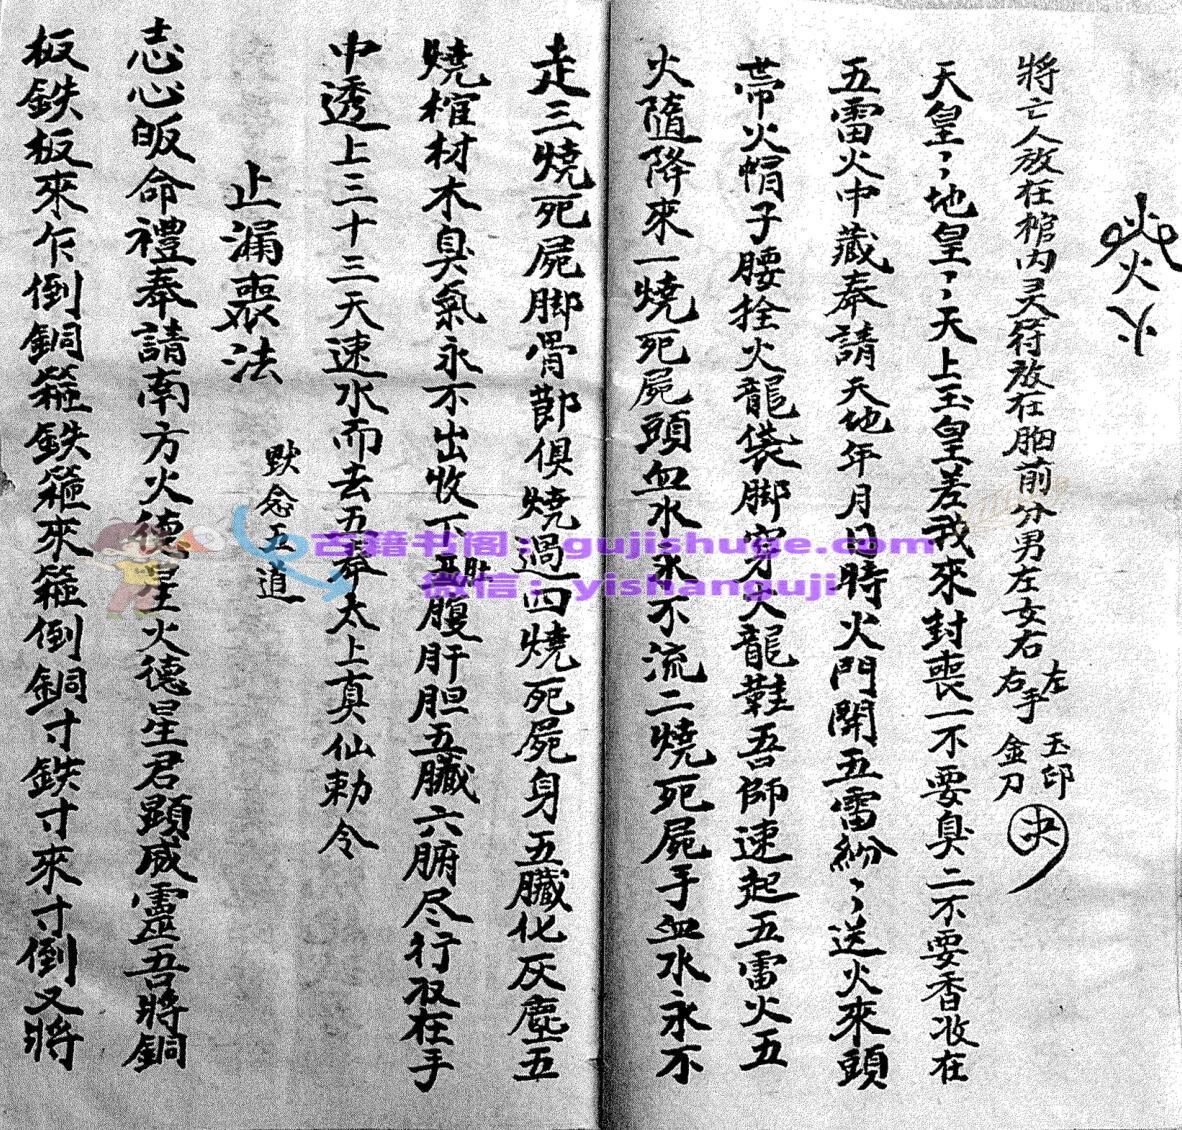 火火火
將亡人放在棺內灵符放在胸前分男左女右左右手玉印金刀決
天皇〻地皇〻天上玉皇差我來封喪一不要臭二不要香收在
五雷火中藏奉請天地年月日時火門開五雷紛〻送火來頭
帶火帽子腰拴火龍袋脚穿火龍鞋吾師速起五雷火五
火隨降來一燒死屍頭血水永不流二燒死屍手血水永不
走三燒死屍脚骨節俱燒過四燒死屍身五臟化灰塵五
燒棺材木臭氣永不出收下肚腹肝胆五臟六腑尽行収在手
中透上三十三天速水而去吾奉太上真仙勅令
止漏喪法 默念五道
志心皈命禮奉請南方火德星火德星君顕威靈吾將銅
板鉄板來乍倒銅箍鉄箍來箍倒銅寸鉄寸來寸倒又將
古籍书阁：gujishuge.com
微信：yishanguji